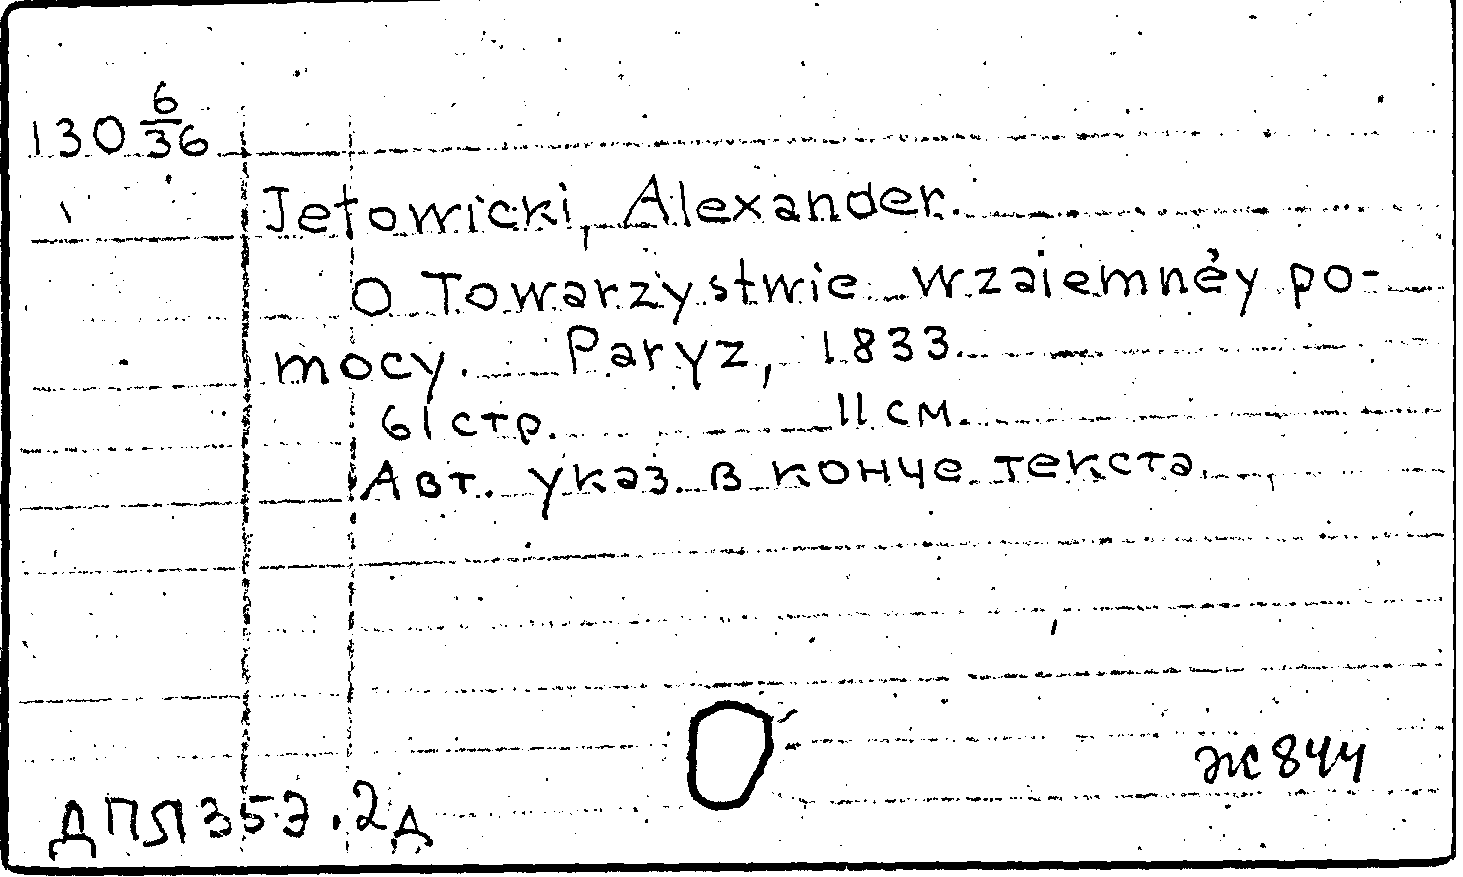 130 6/36
Jełowicki, Alexander.
O Towarzystwie wzaiemnéy po-
mocy. Paryz, 1833.
61 стр. 11 см.
Авт. указ. в конце текста.
Ж 844